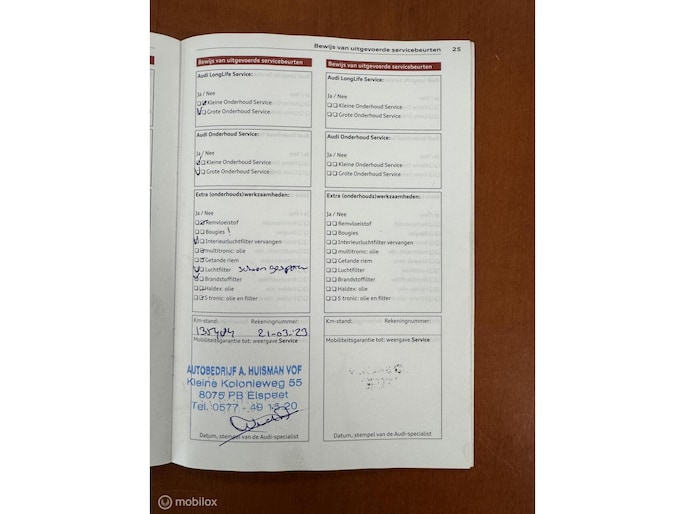 Bewijs van uitgevoerde servicebeurten 25
Bewijs van uitgevoerde servicebeurten
Audi LongLife Service:
Ja / Nee
Kleine Onderhoud Service
Grote Onderhoud Service
Audi Onderhoud Service:
Ja / Nee
Kleine Onderhoud Service
Grote Onderhoud Service
Extra (onderhouds)werkzaamheden:
Ja / Nee
Remvloeistof
Bougies !
Interieurluchtfilter vervangen
multitronic: olie
Getande riem
Luchtfilter
Brandstoffilter
Haldex: olie
S tronic: olie en filter
Km-stand: Rekeningnummer:
21-03-23
Mobiliteitsgarantie tot: weergave Service
AUTOBEDRIJF A. HUISMAN VOF
Kleine Kolonieweg 55
8075 PB Elspeet
Tel. 0577 - 49 15 20
Datum, stempel van de Audi-specialist
Bewijs van uitgevoerde servicebeurten
Audi LongLife Service:
Ja / Nee
Kleine Onderhoud Service
Grote Onderhoud Service
Audi Onderhoud Service:
Ja / Nee
Kleine Onderhoud Service
Grote Onderhoud Service
Extra (onderhouds)werkzaamheden:
Ja / Nee
Remvloeistof
Bougies
Interieurluchtfilter vervangen
multitronic: olie
Getande riem
Luchtfilter
Brandstoffilter
Haldex: olie
S tronic: olie en filter
Km-stand: Rekeningnummer:
Mobiliteitsgarantie tot: weergave Service
Datum, stempel van de Audi-specialist
mobilox